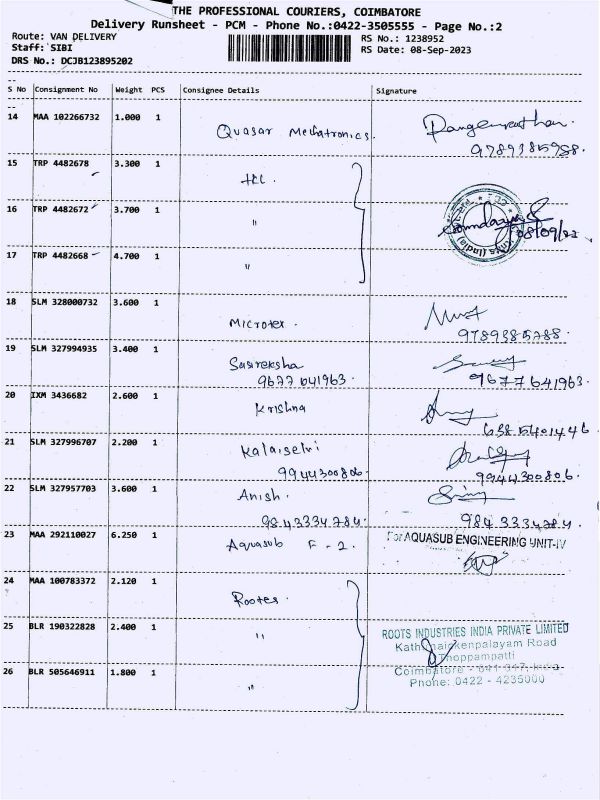 THE PROFESSIONAL COURIERS, COIMBATORE
Delivery Runsheet - PCM - Phone No.:0422-3505555 - Page No.:2
Route: VAN DELIVERY RS No.: 1238952
Staff: SIBI RS Date: 08-Sep-2023
DRS No.: DCJB123895202
S No Consignment No Weight PCS Consignee Details Signature
14 MAA 102266732 1.000 1 Quasar Mechatronics.
9789385788.
15 TRP 4482678 3.300 1 HCL.
16 TRP 4482672 3.700 1 "
17 TRP 4482668 4.700 1 "
18 SLM 328000732 3.600 1 Microtex.
9789385788.
19 SLM 327994935 3.400 1 Sasireksha
9677641963. 9677641963.
20 IXM 3436682 2.600 1 Krishna
6385401446
21 SLM 327996707 2.200 1 Kalaiselvi
9944300806. 9944300806.
22 SLM 327957703 3.600 1 Anish.
9843334784. 9843334784.
23 MAA 292110027 6.250 1 Aquasub F-2. For AQUASUB ENGINEERING UNIT-IV
24 MAA 100783372 2.120 1 Rootes.
25 BLR 190322828 2.400 1 " ROOTS INDUSTRIES INDIA PRIVATE LIMITED
Road
Thoppampatti
26 BLR 505646911 1.800 1 " Coimbatore - 641 017, India
Phone: 0422 - 4235000